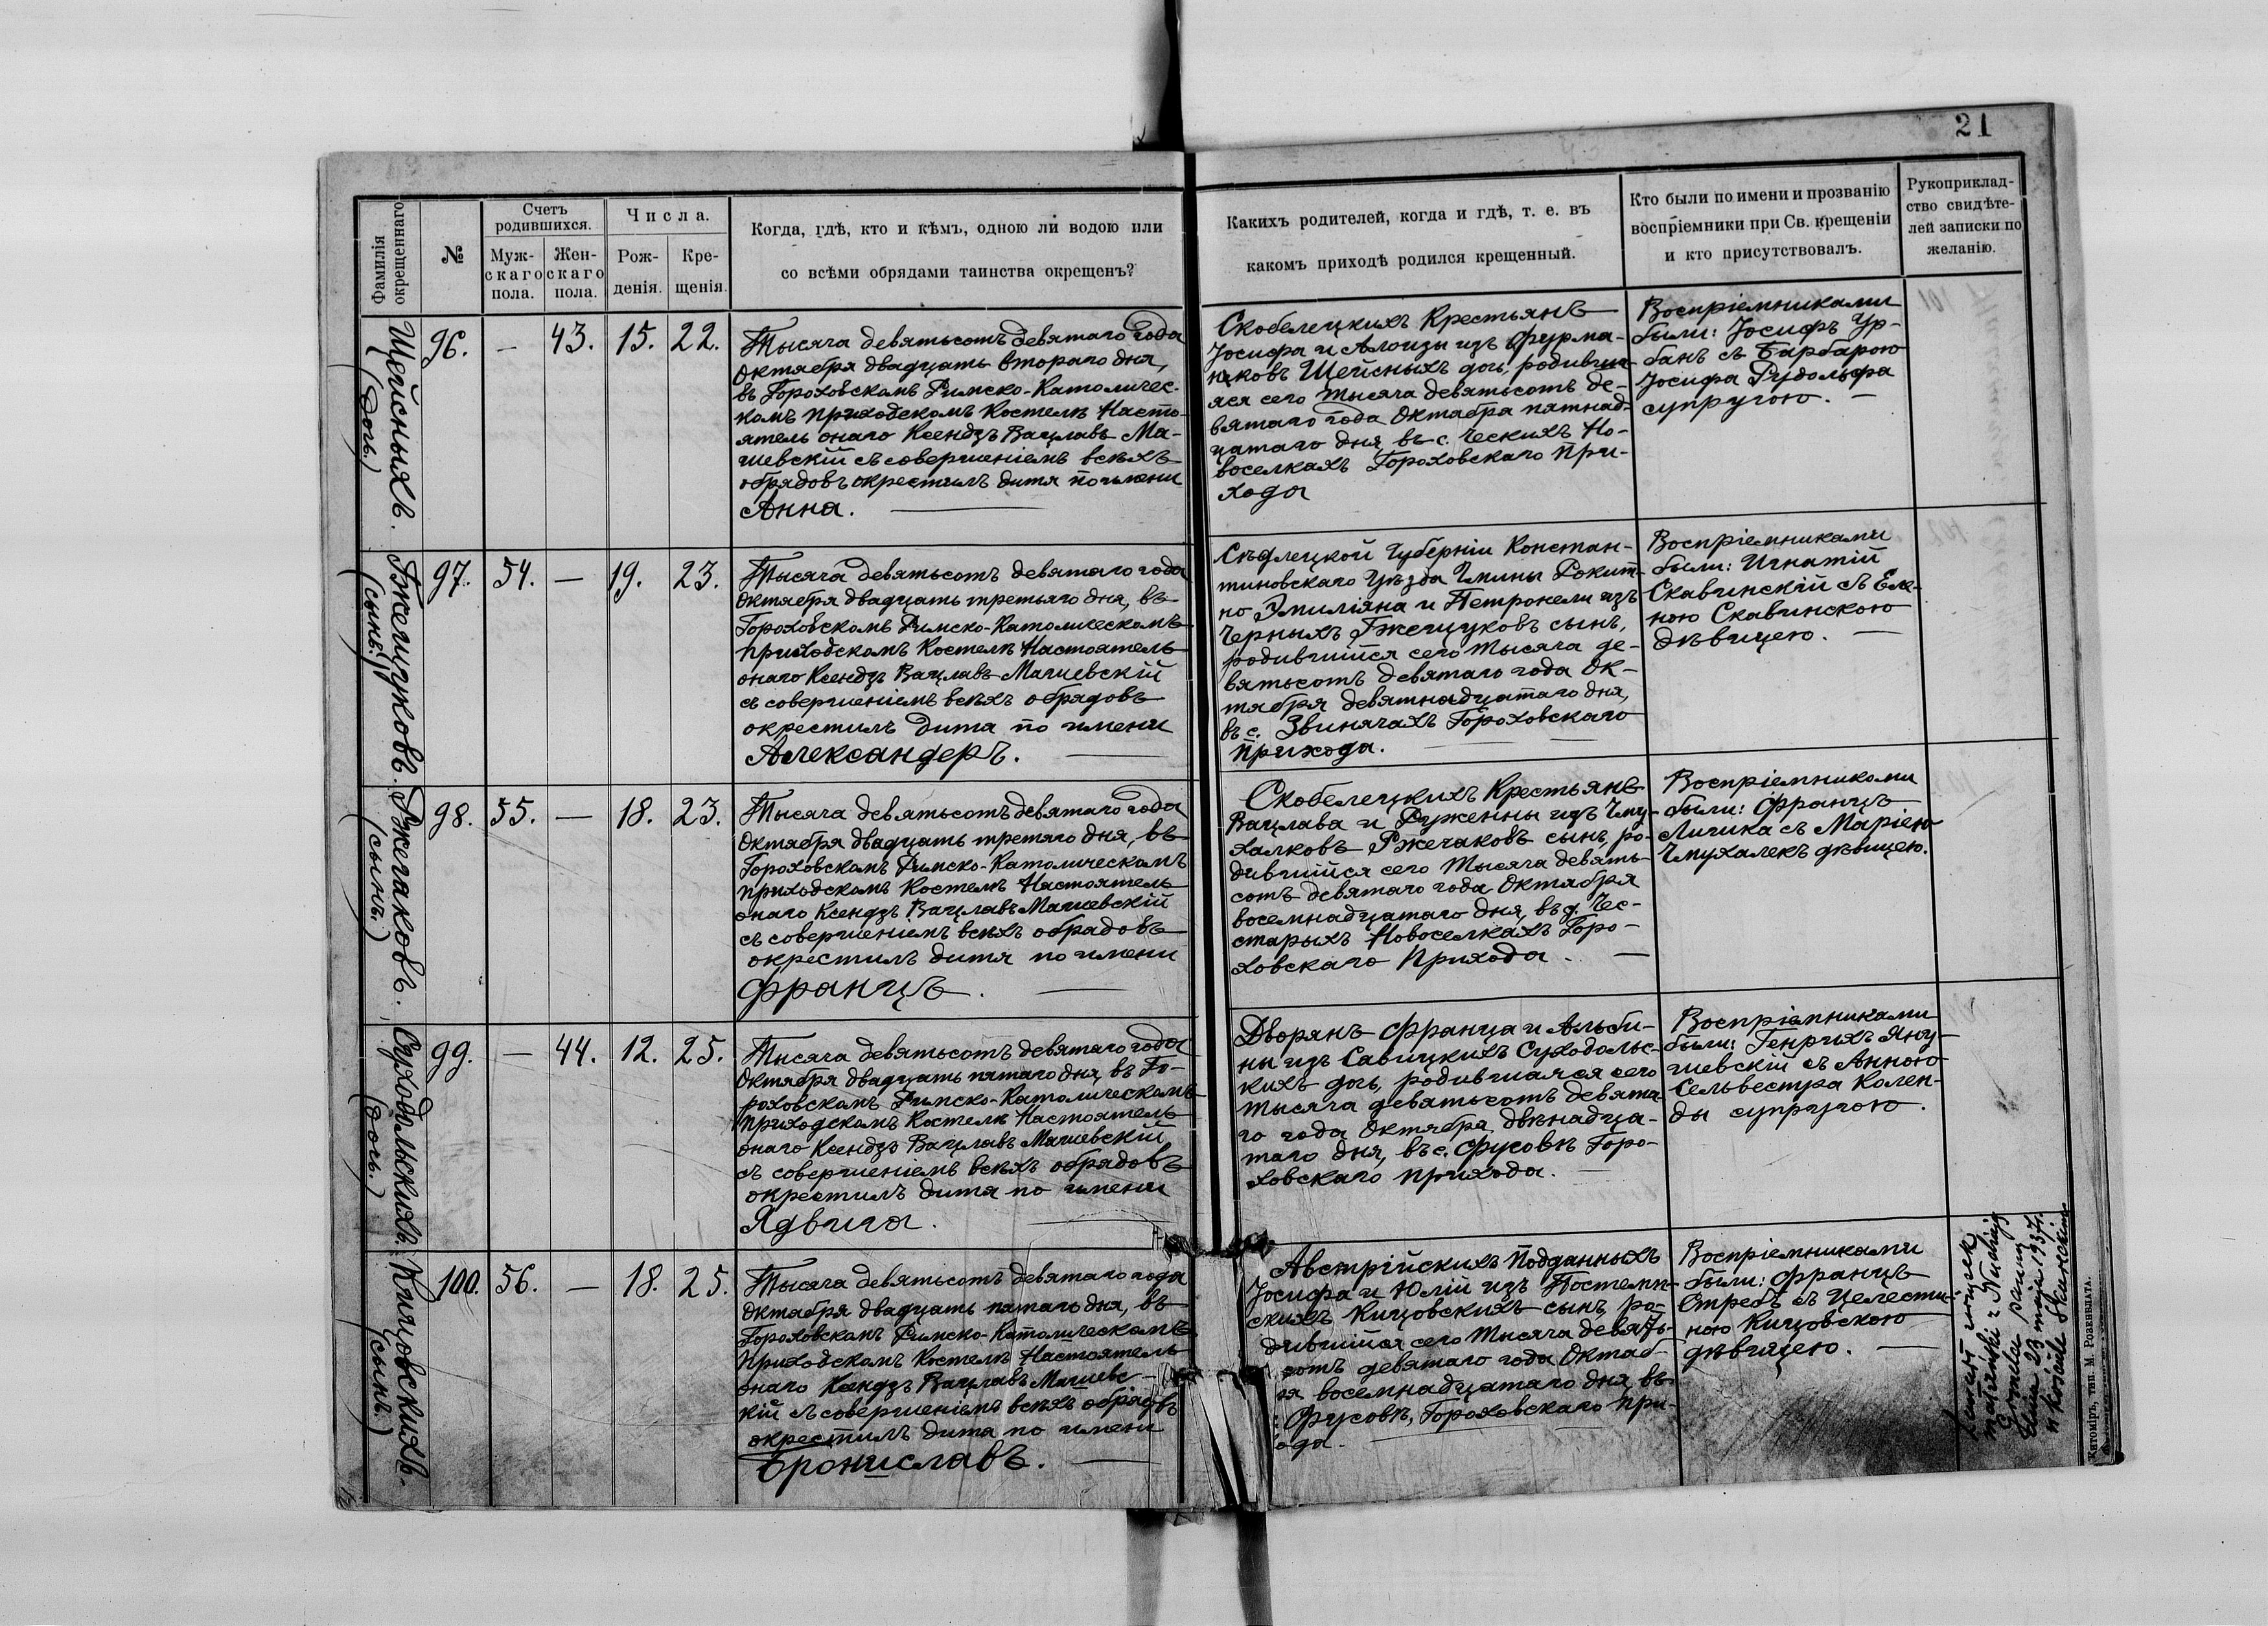 21
Фамилія
окрещеннаго
№
Счетъ
родившихся.
Муж-
скаго
пола.
Жен-
скаго
пола.
Числа.
Рож-
денія.
Кре-
щенія.
Когда, гдѣ, кто и кѣмъ, одною ли водою или
со всѣми обрядами таинства окрещенъ?
Какихъ родителей, когда и гдѣ, т. е. въ
какомъ приходѣ родился крещенный.
Кто были по имени и прозванію
воспріемники при Св. крещеніи
и кто присутствовалъ.
Рукоприклад-
ство свидѣте-
лей записки по
желанію.
Щейсныхъ.
(дочь.)
96. — 43. 15. 22.
Тысяча девятьсотъ девятаго года
Октября двадцать втораго дня,
въ Гороховскомъ Римско-Католичес-
комъ приходскомъ Костелѣ Насто-
ятель онаго Ксендзъ Вацлавъ Ма-
чиевскій съ совершеніемъ всѣхъ
обрядовъ окрестилъ дитя по имени
Анна.
Скобелецкихъ Крестьянъ
Іосифа и Алоизы изъ Фурма-
нковъ Щейсныхъ дочь, родивша-
яся сего тысяча девятьсотъ де-
вятаго года Октября пятнад-
цатаго дня, въ с. Ческихъ Но-
воселкахъ Гороховскаго при-
хода
Воспріемниками
были: Іосифъ Ур-
банъ съ Барбарою
Іосифа Рудольфа
супругою. —
Гжещуковъ.
(сынъ.)
97. 54. — 19. 23.
Тысяча девятьсотъ девятаго года
Октября двадцать третьяго дня, въ
Гороховскомъ Римско-Католическомъ
приходскомъ Костелѣ Настоятель
онаго Ксендзъ Вацлавъ Мачиевскій
съ совершеніемъ всѣхъ обрядовъ
окрестилъ дитя по имени
Александеръ.
Сѣдлецкой Губерніи Констан-
тиновскаго Уѣзда Гмины Рокит-
но Эмиліяна и Петронели изъ
Черныхъ Гжещуковъ сынъ,
родившійся сего тысяча де-
вятьсотъ девятаго года Ок-
тября девятнадцатаго дня,
въ с. Звинячахъ Гороховскаго
прихода.
Воспріемниками
были: Игнатій
Скавинскій съ Еле-
ною Скавинскою
дѣвицею. —
Ржегаковъ.
(сынъ.)
98. 55. — 18. 23.
Тысяча девятьсотъ девятаго года
Октября двадцать третяго дня, въ
Гороховскомъ Римско-Католическомъ
приходскомъ Костелѣ Настоятель
онаго Ксендзъ Вацлавъ Мачиевскій
съ совершеніемъ всѣхъ обрядовъ
окрестилъ дитя по имени
Францъ.
Скобелецкихъ Крестьянъ
Вацлава и Руженны изъ Чму-
халковъ Ржечаковъ сынъ, ро-
дившійся сего тысяча девять-
сотъ девятаго года Октября
восемнадцатаго дня, въ д. Чес-
старыхъ Новоселкахъ Горо-
ховскаго Прихода. —
Воспріемниками
были: Францъ
Личика съ Маріею
Чмухалекъ дѣвицею.
Суходольскихъ.
(дочь.)
99. — 44. 12. 25.
Тысяча девятьсотъ девятаго года
Октября двадцать пятаго дня, въ Го-
роховскомъ Римско-Католическомъ
приходскомъ Костелѣ Настоятель
онаго Ксендзъ Вацлавъ Мачиевскій
съ совершеніемъ всѣхъ обрядовъ
окрестилъ дитя по имени
Ядвига.
Дворянъ Франца и Альби-
ны изъ Савицкихъ Суходольс-
кихъ дочь, родившаяся сего
тысяча девятьсотъ девята
го года Октября двѣнадца-
таго дня, въ с. Фусовѣ Горо-
ховскаго прихода.
Воспріемниками
были: Генрихъ Яну-
шевскій съ Анною
Сельвестра Колен-
ды супругою.
Кицовскихъ.
(сынъ.)
100. 56. — 18. 25.
Тысяча девятьсотъ девятаго года
Октября двадцать пятаго дня, въ
Гороховскомъ Римско-Католическомъ
приходскомъ Костелѣ Настоятель
онаго Ксендзъ Вацлавъ Мачиевс-
кій съ совершеніемъ всѣхъ обрядовъ
окрестилъ дитя по имени
Брониславъ.
Австрійскихъ Подданныхъ
Іосифа и Юлій изъ
скихъ Кицовскихъ сынъ, ро-
дившійся сего тысяча девять-
сотъ девятаго года Октяб-
ря восемнадцатаго дня, въ
Фусовѣ, Гороховскаго при-
ода.
Воспріемниками
были: Францъ
Отребъ съ Целести-
ною Кицовскою
дѣвицею. —
małżeński z
23 maja 1937 r.
w kościele
Житоміръ, тип. М. Розенблата.